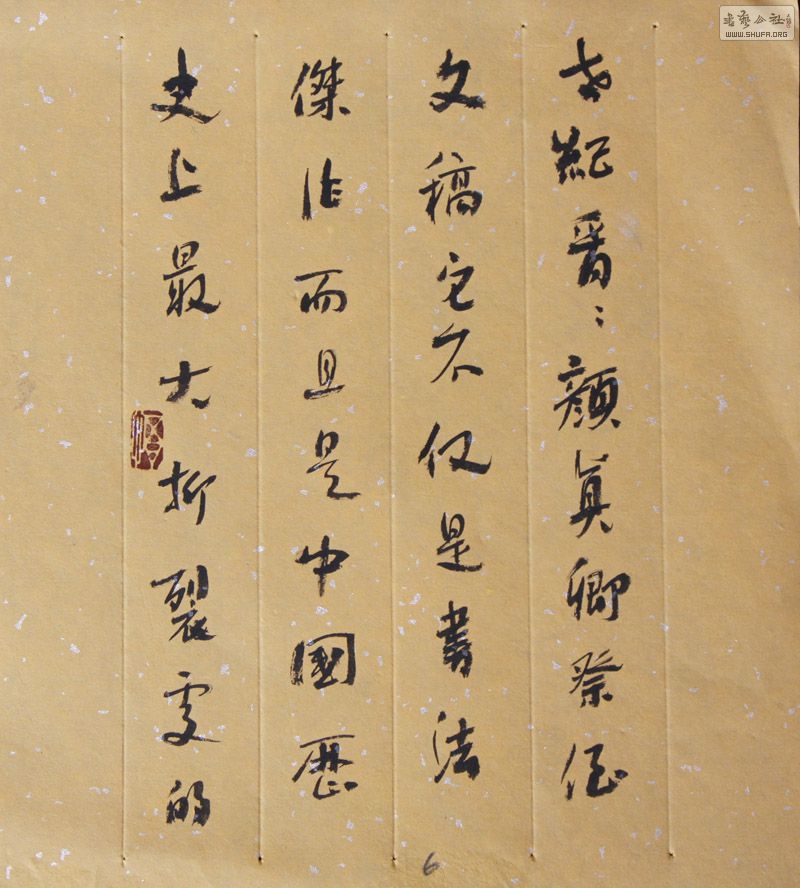 晋〻顏真卿祭侄
文稿它不仅是書法
傑作而且是中國歷
史上最大抑裂变的
6
書藝公社
WWW.SHUFA.ORG